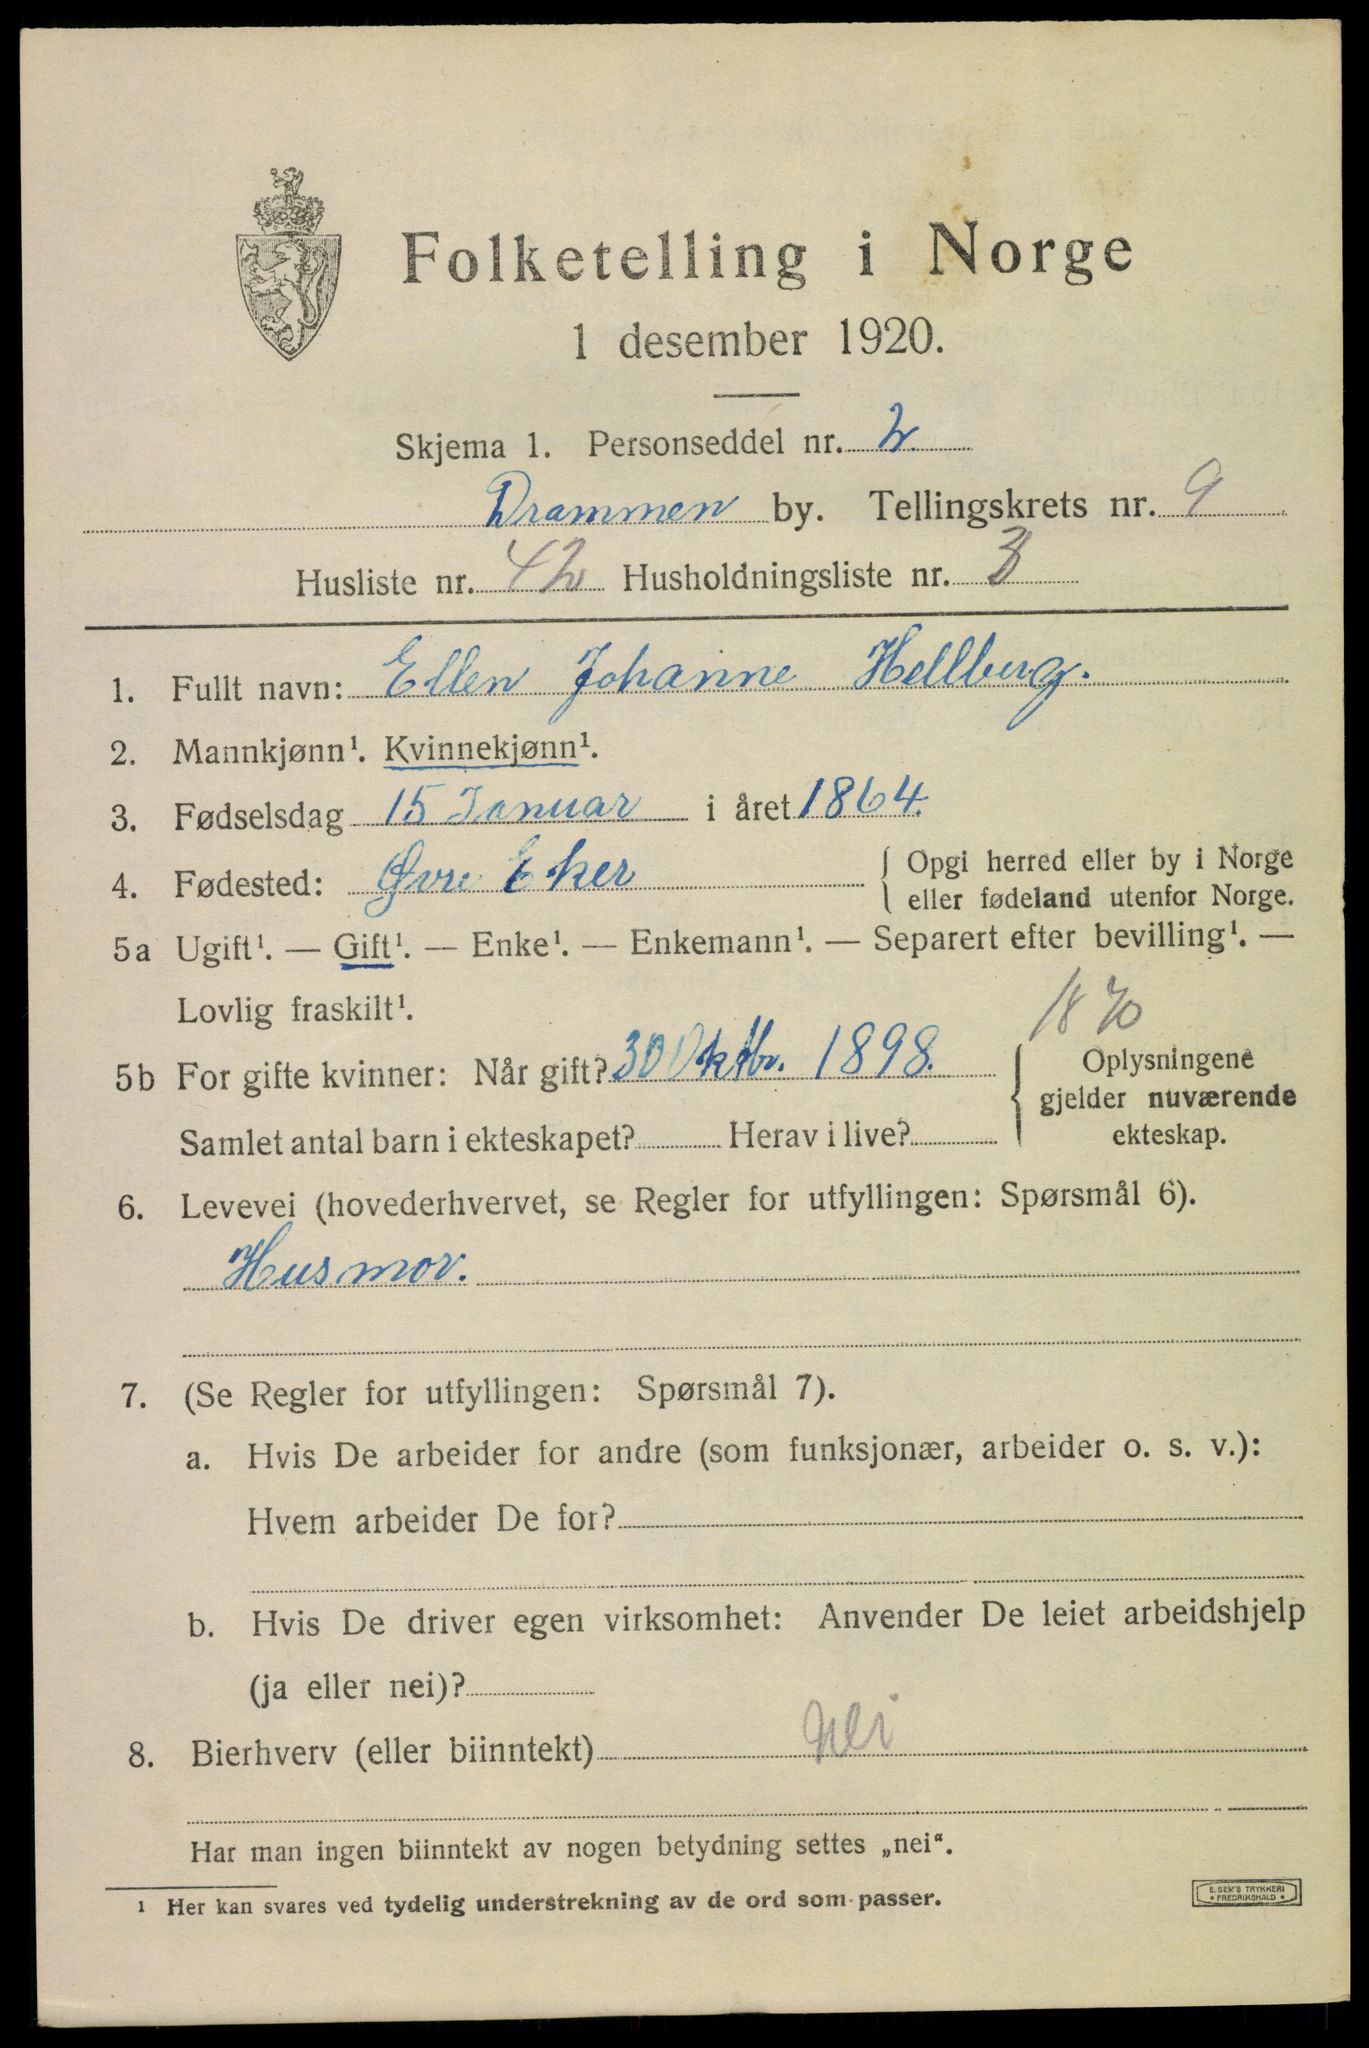 Folketelling i Norge
1 desember 1920.
Skjema 1. Personseddel nr. 2
Drammen by. Tellingskrets nr. 9
Husliste nr. 42 Husholdningsliste nr. 3
1. Fullt navn: Ellen Johanne Hellberg.
2. Mannkjønn¹. Kvinnekjønn¹.
3. Fødselsdag 15 Januar i året 1864.
4. Fødested: Øvre Eker { Opgi herred eller by i Norge
eller fødeland utenfor Norge.
5a Ugift¹. — Gift¹. — Enke¹. — Enkemann¹. — Separert efter bevilling¹. —
Lovlig fraskilt¹.
5b For gifte kvinner: Når gift? 30 Oktbr. 1898. { Oplysningene
gjelder nuværende
Samlet antal barn i ekteskapet? Herav i live? ekteskap.
6. Levevei (hovederhvervet, se Regler for utfyllingen: Spørsmål 6).
Husmor.
7. (Se Regler for utfyllingen: Spørsmål 7).
a. Hvis De arbeider for andre (som funksjonær, arbeider o. s. v.):
Hvem arbeider De for?
b. Hvis De driver egen virksomhet: Anvender De leiet arbeidshjelp
(ja eller nei)?
8. Bierhverv (eller biinntekt) Nei
Har man ingen biinntekt av nogen betydning settes „nei“.
¹ Her kan svares ved tydelig understrekning av de ord som passer.
E. SEM'S TRYKKERI
• FREDRIKSHALD •